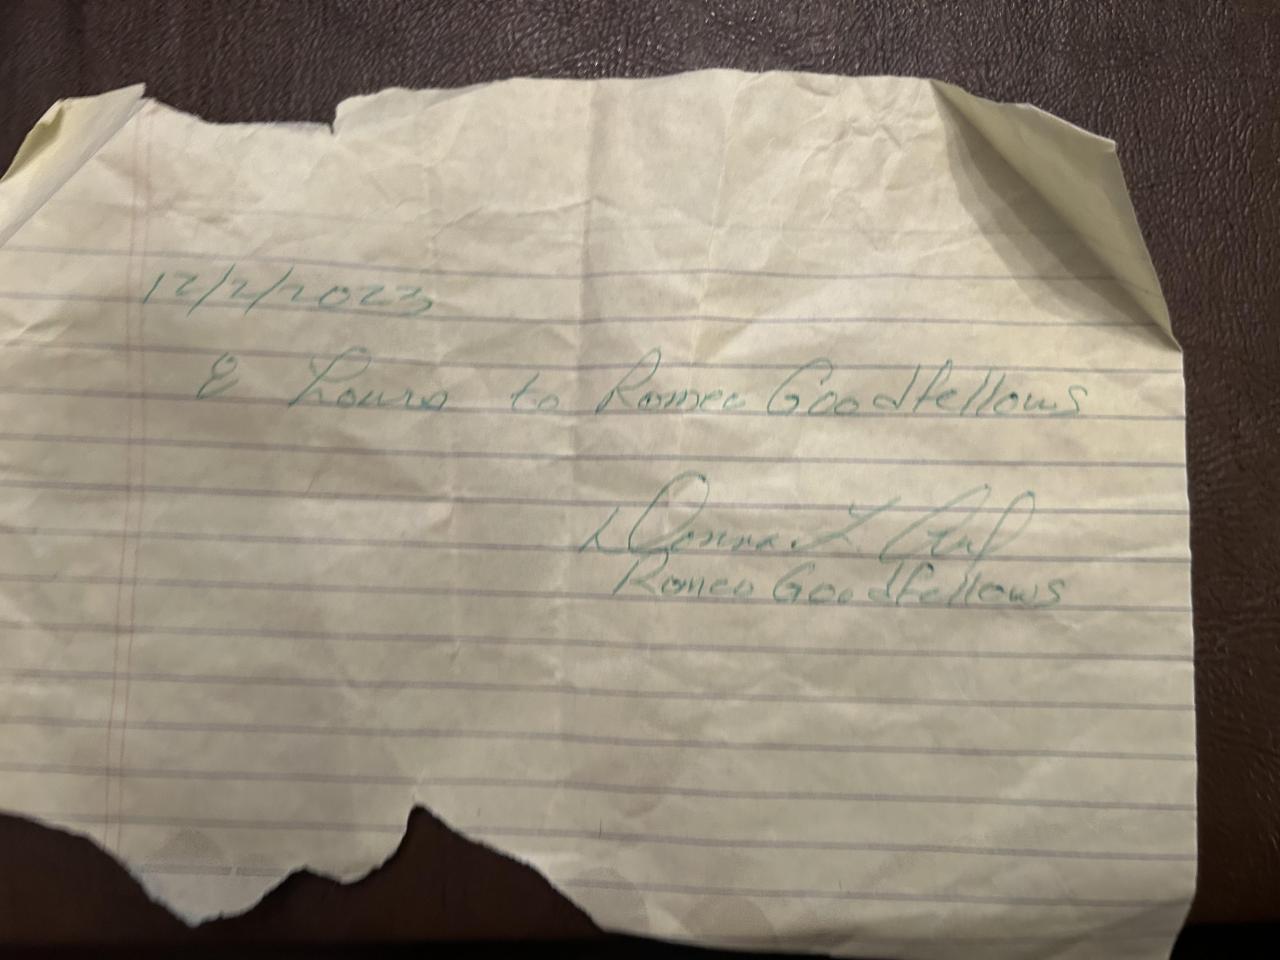 12/2/2023
8 hours to Romeo Goodfellows
Donna L.
Romeo Goodfellows